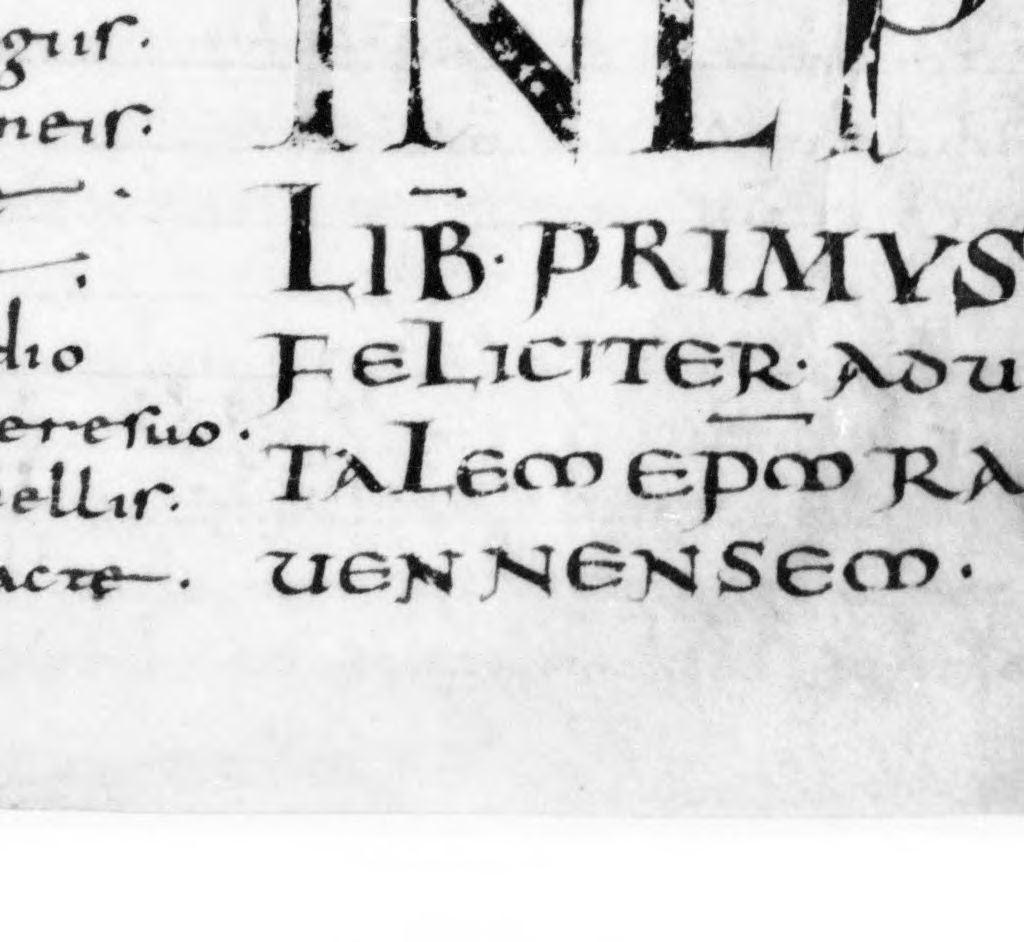 gus.
neis.
dio
eresuo.
ellis.
acte.
INLP
LIB̅. PRIMVS
FELICITER. ADU
TALEM EP̅M̅ RA
UENNENSEM.